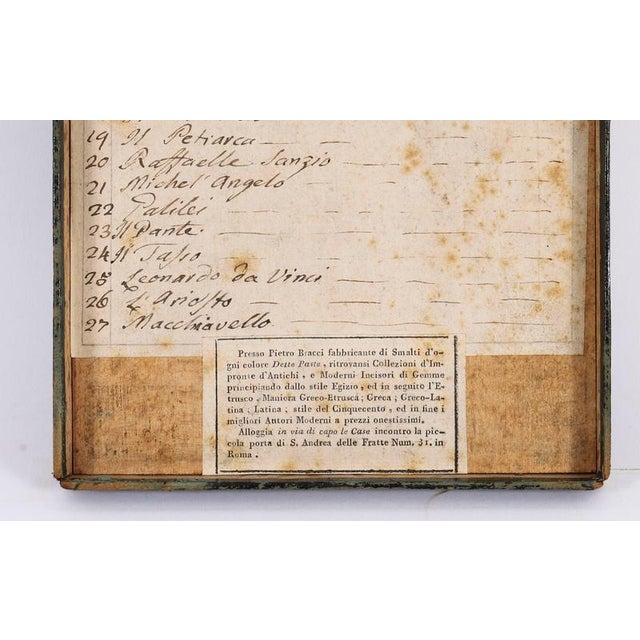 19 Il Petrarca
20 Raffaelle Sanzio
21 Michel' Angelo
22 Galilei
23 Il Dante
24 Il Tasso
25 Leonardo da Vinci
26 L'Ariosto
27 Macchiavello
Presso Pietro Bracci fabbricante di Smalti d'o-
gni colore Dette Paste, ritrovansi Collezioni d'Im-
pronte d'Antichi, e Moderni Incisori di Gemme
principiando dallo stile Egizio, ed in seguito l'E-
trusco, Maniera Greco-Etrusca; Greca; Greco-La-
tina; Latina; stile del Cinquecento, ed in fine i
migliori Autori Moderni a prezzi onestissimi.
Alloggia in via di capo le Case incontro la pic-
cola porta di S. Andrea delle Fratte Num. 31. in
Roma.